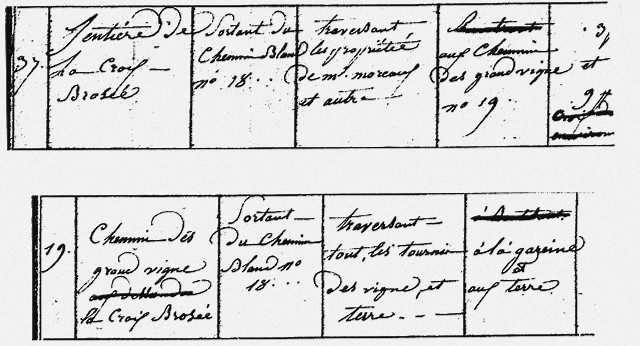 37.
Sentiére De
La Croix
Brosée
Sortant du
Chemin Bland
nº 18...
traversant
les propriété
de mr moreaux
et autre
aux Chemmin
Des grand vigne
nº 19.
3
et
9
19.
Chemmin Dés
grand vigne
La Croix Brosée
Sortant
du Chemin
Bland nº
18...
traversant
tout, les tournie
des vigne, et
terre
á lá gareine
et
aux terre